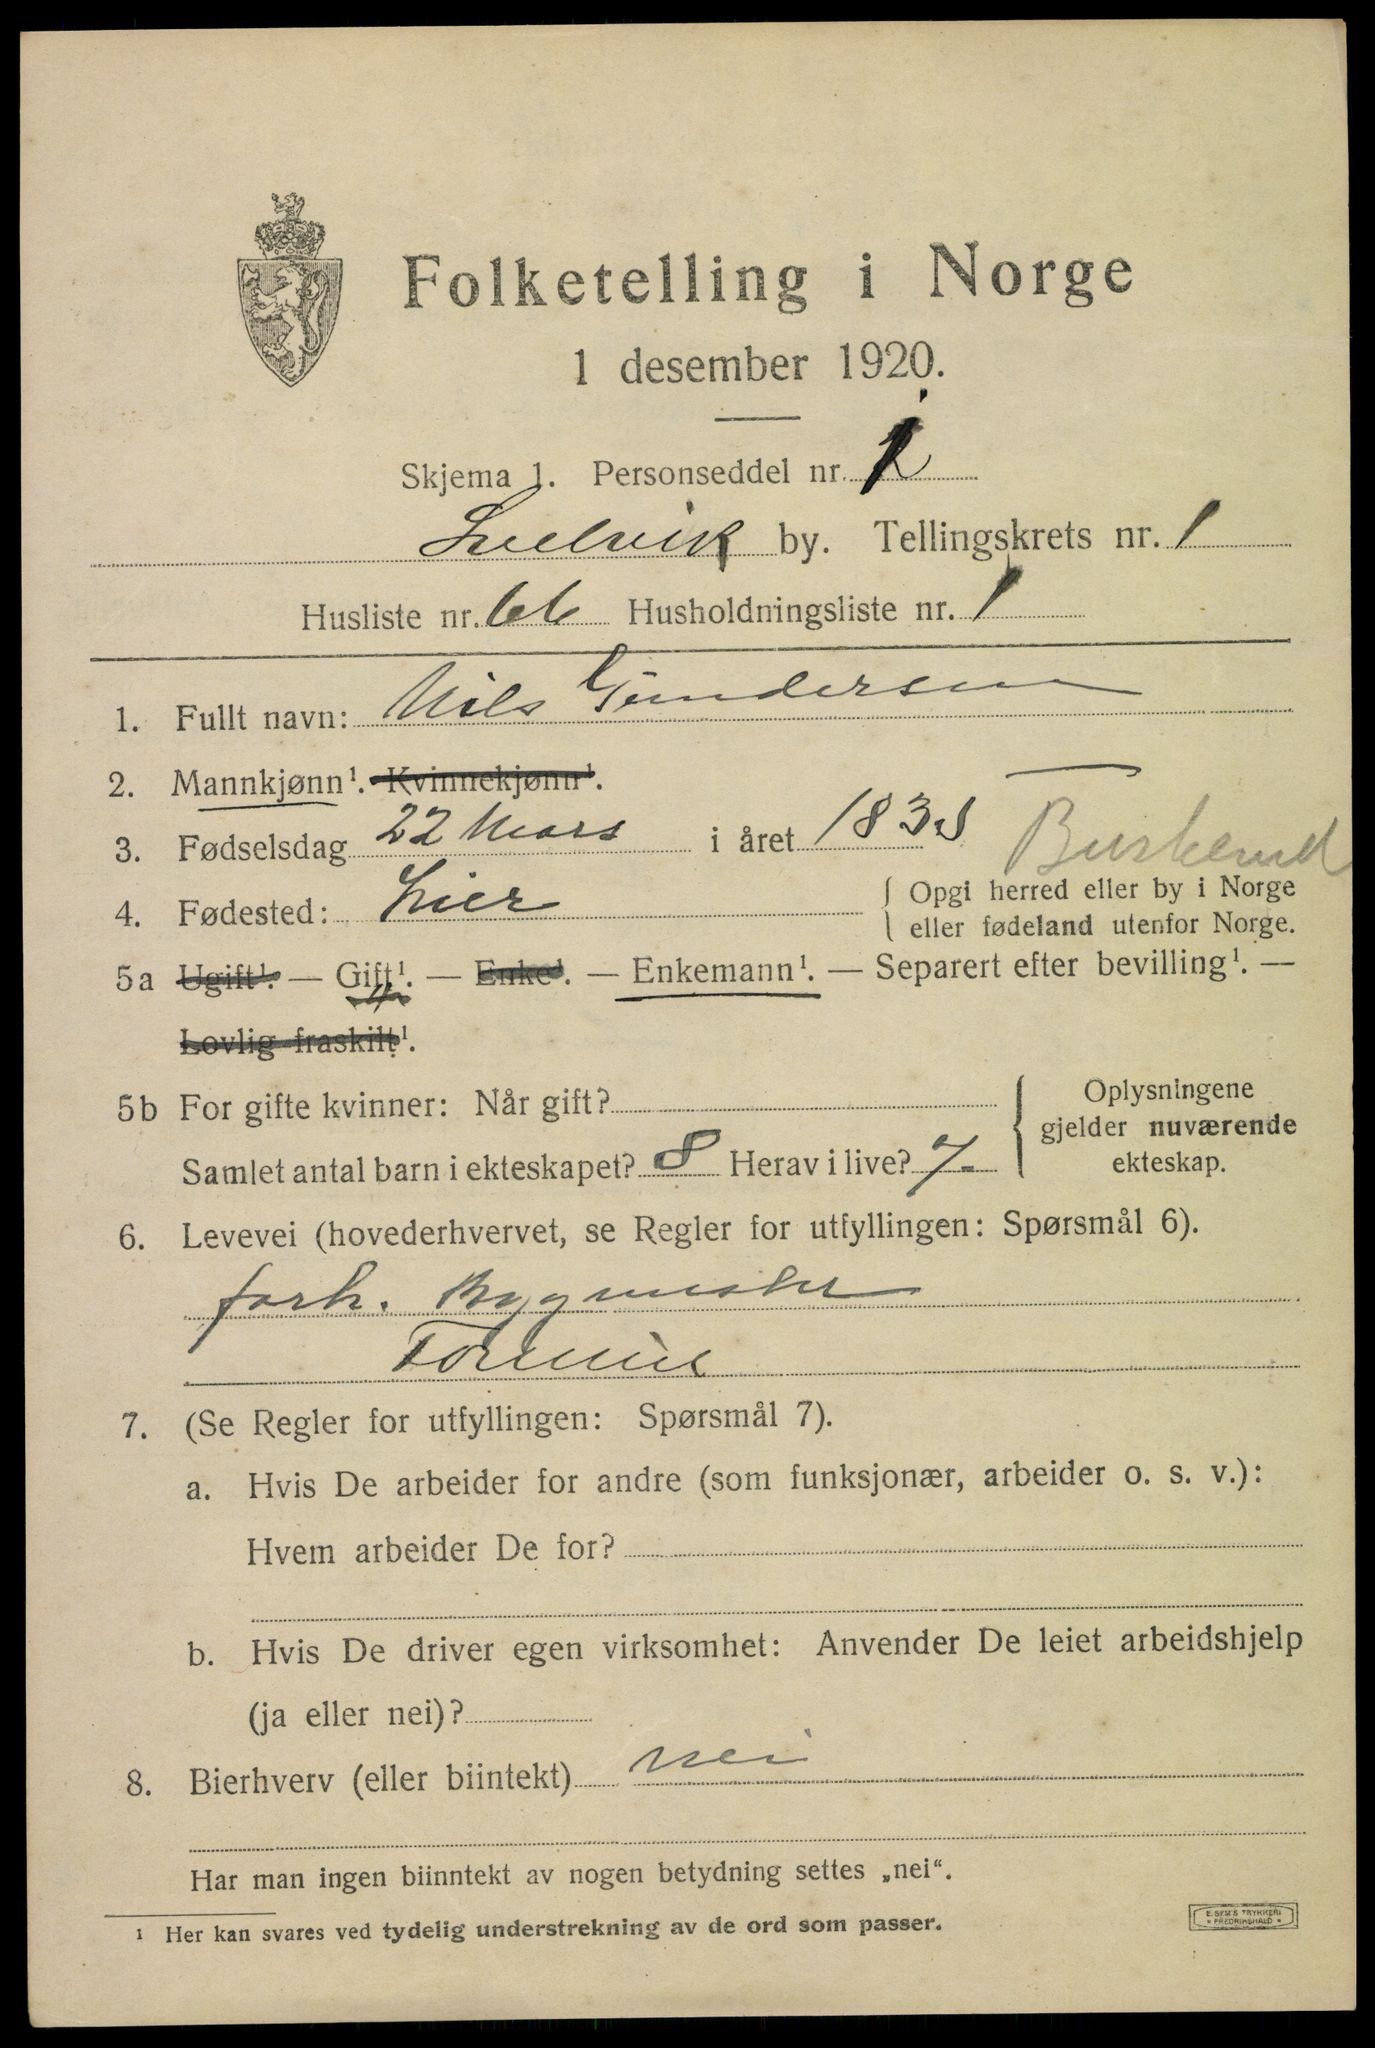 Folketelling i Norge
1 desember 1920.
Skjema 1. Personseddel nr. 1
Svelvik by. Tellingskrets nr. 1
Husliste nr. 66 Husholdningsliste nr. 1
1. Fullt navn: Nils Gundersen
2. Mannkjønn¹. Kvinnekjønn¹.
3. Fødselsdag 22 Mars i året 183
Buskerud
4. Fødested: Lier { Opgi herred eller by i Norge
eller fødeland utenfor Norge.
5a Ugift¹. — Gift¹. — Enke¹. — Enkemann¹. — Separert efter bevilling¹. —
Lovlig fraskilt¹.
5b For gifte kvinner: Når gift? { Oplysningene
gjelder nuværende
ekteskap.
Samlet antal barn i ekteskapet? 8 Herav i live? 7.
6. Levevei (hovederhvervet, se Regler for utfyllingen: Spørsmål 6).
forh. Bygmester
Formue
7. (Se Regler for utfyllingen: Spørsmål 7).
a. Hvis De arbeider for andre (som funksjonær, arbeider o. s. v.):
Hvem arbeider De for?
b. Hvis De driver egen virksomhet: Anvender De leiet arbeidshjelp
(ja eller nei)?
8. Bierhverv (eller biintekt) nei
Har man ingen biinntekt av nogen betydning settes „nei“.
¹ Her kan svares ved tydelig understrekning av de ord som passer.
E. SEM'S TRYKKERI
FREDRIKSHALD